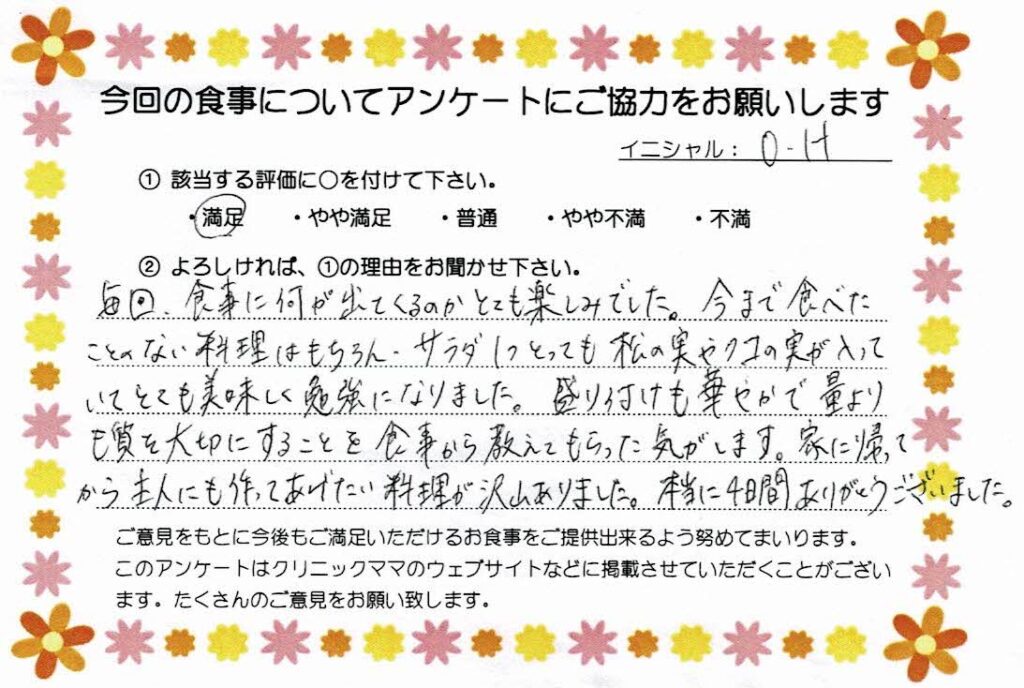 今回の食事についてアンケートにご協力をお願いします
イニシャル： O-H
① 該当する評価に○を付けて下さい。
・満足 ・やや満足 ・普通 ・やや不満 ・不満
② よろしければ、①の理由をお聞かせ下さい。
毎回、食事に何が出てくるのかとても楽しみでした。今まで食べた
ことのない料理はもちろん、サラダ1つとっても松の実やクコの実が入って
いてとても美味しく勉強になりました。盛り付けも華やかで量より
も質を大切にすることを食事から教えてもらった気がします。家に帰って
から主人にも作ってあげたい料理が沢山ありました。本当に4日間ありがとうございました。
ご意見をもとに今後もご満足いただけるお食事をご提供出来るよう努めてまいります。
このアンケートはクリニックママのウェブサイトなどに掲載させていただくことがござい
ます。たくさんのご意見をお願い致します。